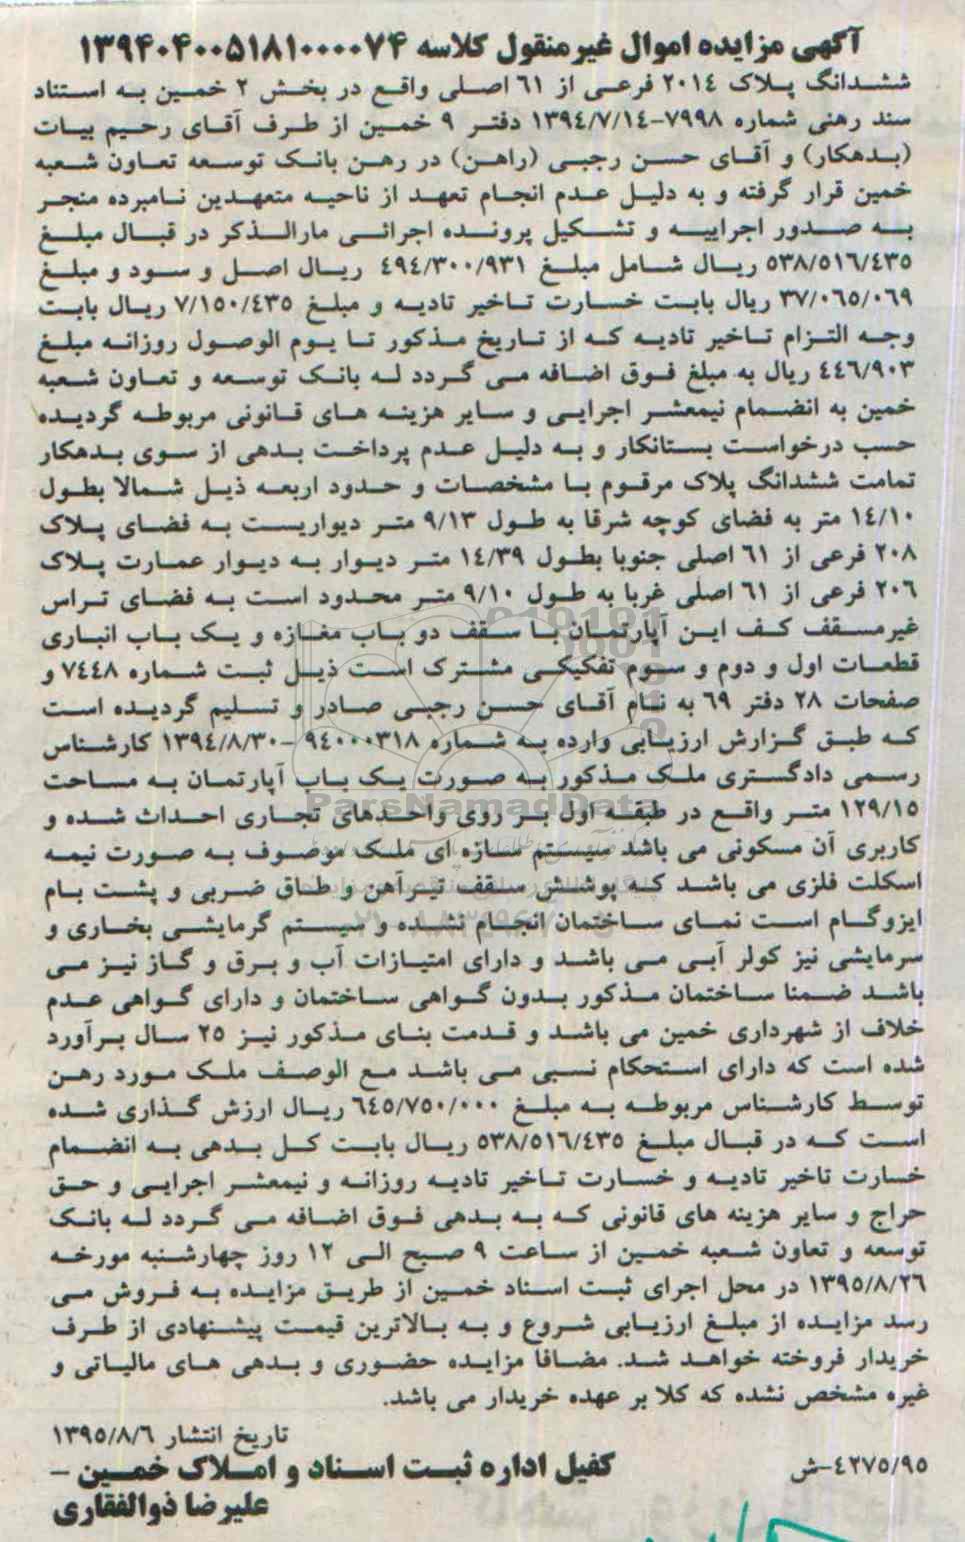 آگهی مزایده اموال غیرمنقول کلاسه ۱۳۹۴۰۴۰۰۵۱۸۱۰۰۰۰۷۴
ششدانگ پلاک ۲۰۱۴ فرعی از ۶۱ اصلی واقع در بخش ۲ خمین به استناد
سند رهنی شماره ۷۹۹۸-۱۳۹۴/۷/۱۴ دفتر ۹ خمین از طرف آقای رحیم بیات
(بدهکار) و آقای حسن رجبی (راهن) در رهن بانک توسعه تعاون شعبه
خمین قرار گرفته و به دلیل عدم انجام تعهد از ناحیه متعهدین نامبرده منجر
به صدور اجراییه و تشکیل پرونده اجرائی مارالذکر در قبال مبلغ
۵۳۸/۵۱۶/۴۳۵ ریال شامل مبلغ ۴۹۴/۳۰۰/۹۳۱ ریال اصل و سود و مبلغ
۳۷/۰۶۵/۰۶۹ ریال بابت خسارت تاخیر تادیه و مبلغ ۷/۱۵۰/۴۳۵ ریال بابت
وجه التزام تاخیر تادیه که از تاریخ مذکور تا یوم الوصول روزانه مبلغ
۴۴۶/۹۰۳ ریال به مبلغ فوق اضافه می گردد له بانک توسعه و تعاون شعبه
خمین به انضمام نیمعشر اجرایی و سایر هزینه های قانونی مربوطه گردیده
حسب درخواست بستانکار و به دلیل عدم پرداخت بدهی از سوی بدهکار
تمامت ششدانگ پلاک مرقوم با مشخصات و حدود اربعه ذیل شمالا بطول
۱۴/۱۰ متر به فضای کوچه شرقا به طول ۹/۱۳ متر دیواریست به فضای پلاک
۲۰۸ فرعی از ۶۱ اصلی جنوبا بطول ۱۴/۳۹ متر دیوار به دیوار عمارت پلاک
۲۰۶ فرعی از ۶۱ اصلی غربا به طول ۹/۱۰ متر محدود است به فضای تراس
غیرمسقف کف این آپارتمان با سقف دو باب مغازه و یک باب انباری
قطعات اول و دوم و سوم تفکیکی مشترک است ذیل ثبت شماره ۷۴۴۸ و
صفحات ۲۸ دفتر ۶۹ به نام آقای حسن رجبی صادر و تسلیم گردیده است
که طبق گزارش ارزیابی وارده به شماره ۹۴۰۰۰۳۱۸ -۱۳۹۴/۸/۳۰ کارشناس
رسمی دادگستری ملک مذکور به صورت یک باب آپارتمان به مساحت
۱۲۹/۱۵ متر واقع در طبقه اول بر روی واحدهای تجاری احداث شده و
کاربری آن مسکونی می باشد سیستم سازه ای ملک موصوف به صورت نیمه
اسکلت فلزی می باشد که پوشش سقف تیرآهن و طاق ضربی و پشت بام
ایزوگام است نمای ساختمان انجام نشده و سیستم گرمایشی بخاری و
سرمایشی نیز کولر آبی می باشد و دارای امتیازات آب و برق و گاز نیز می
باشد ضمنا ساختمان مذکور بدون گواهی ساختمان و دارای گواهی عدم
خلاف از شهرداری خمین می باشد و قدمت بنای مذکور نیز ۲۵ سال برآورد
شده است که دارای استحکام نسبی می باشد مع الوصف ملک مورد رهن
توسط کارشناس مربوطه به مبلغ ۶۴۵/۷۵۰/۰۰۰ ریال ارزش گذاری شده
است که در قبال مبلغ ۵۳۸/۵۱۶/۴۳۵ ریال بابت کل بدهی به انضمام
خسارت تاخیر تادیه و خسارت تاخیر تادیه روزانه و نیمعشر اجرایی و حق
حراج و سایر هزینه های قانونی که به بدهی فوق اضافه می گردد له بانک
توسعه و تعاون شعبه خمین از ساعت ۹ صبح الی ۱۲ روز چهارشنبه مورخه
۱۳۹۵/۸/۲۶ در محل اجرای ثبت اسناد خمین از طریق مزایده به فروش می
رسد مزایده از مبلغ ارزیابی شروع و به بالاترین قیمت پیشنهادی از طرف
خریدار فروخته خواهد شد. مضافا مزایده حضوری و بدهی های مالیاتی و
غیره مشخص نشده که کلا بر عهده خریدار می باشد.
تاریخ انتشار ۱۳۹۵/۸/۶
۴۲۷۵/۹۵-ش
کفیل اداره ثبت اسناد و املاک خمین –
علیرضا ذوالفقاری
ParsNamadData